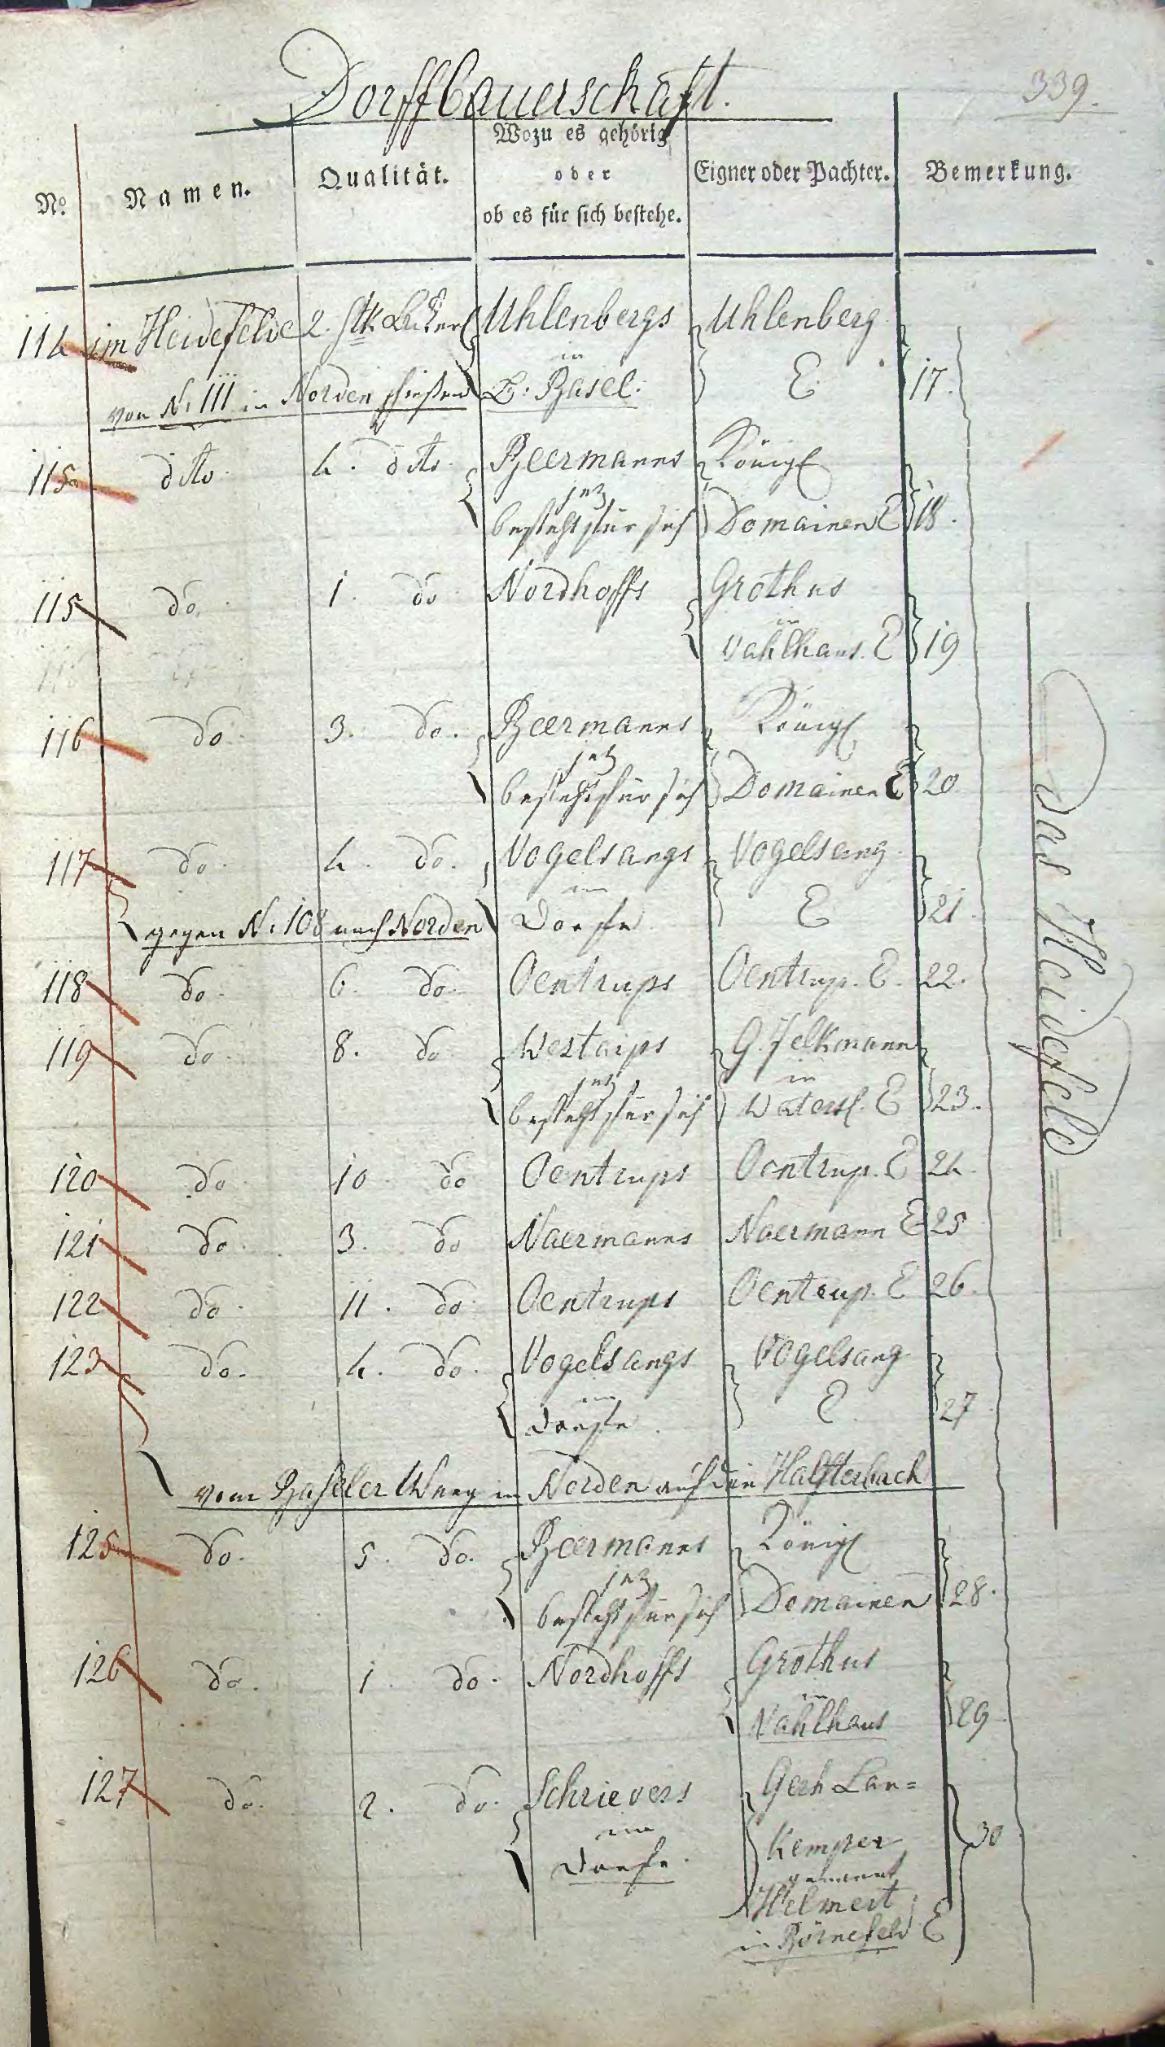 Dorffbauerschaft.
339.
No. Namen. Qualität. Wozu es gehörig oder ob es für sich bestehe. Eigner oder Pachter. Bemerkung.
114 im Heidefelde 2. stk Äcker Uhlenbergs Uhlenberg
in
B. Basel. E 17.
von N: 111 in Norden schießen
115 dito 4. dito Beermanns Königl
jetz
besteht für sich Domainen E 18.
115 do. 1. do Nordhoffs Grothus
in
Vahlhaus. E 19
116 do 3. do. Beermanns Königl
jetz
besteht für sich Domainen E 20
117 do 4. do. Vogelsangs Vogelsang
im
Dorfe E 21
gegen N: 108 nach Norden
118 do 6. do. Oentrups Oentrup. E. 22.
119 do 8. do Westarps G. Felkmann
jetz in
besteht für sich Watersl. E 23.
120 do 10 do Oentrups Oentrup. E 24
121 do 3. do Naermanns Naermann E 25
122 do 11. do Oentrups Oentrup. E 26.
123 do. 4. do. Vogelsangs Vogelsang
im
Dorfe E 27
vom Baseler Weeg in Norden auf den Halfterbach
125 do. 5. do. Beermanns Königl
jetz
besteht für sich Domainen 28.
126 do. 1 do. Nordhoffs Grothus
in
Vahlhaus 29
127 do. 2. do. Schrievers Gerh Lan=
im kemper 30
Dorfe. genannt
Helmert
in Börnefeld E
Das Heidefeld